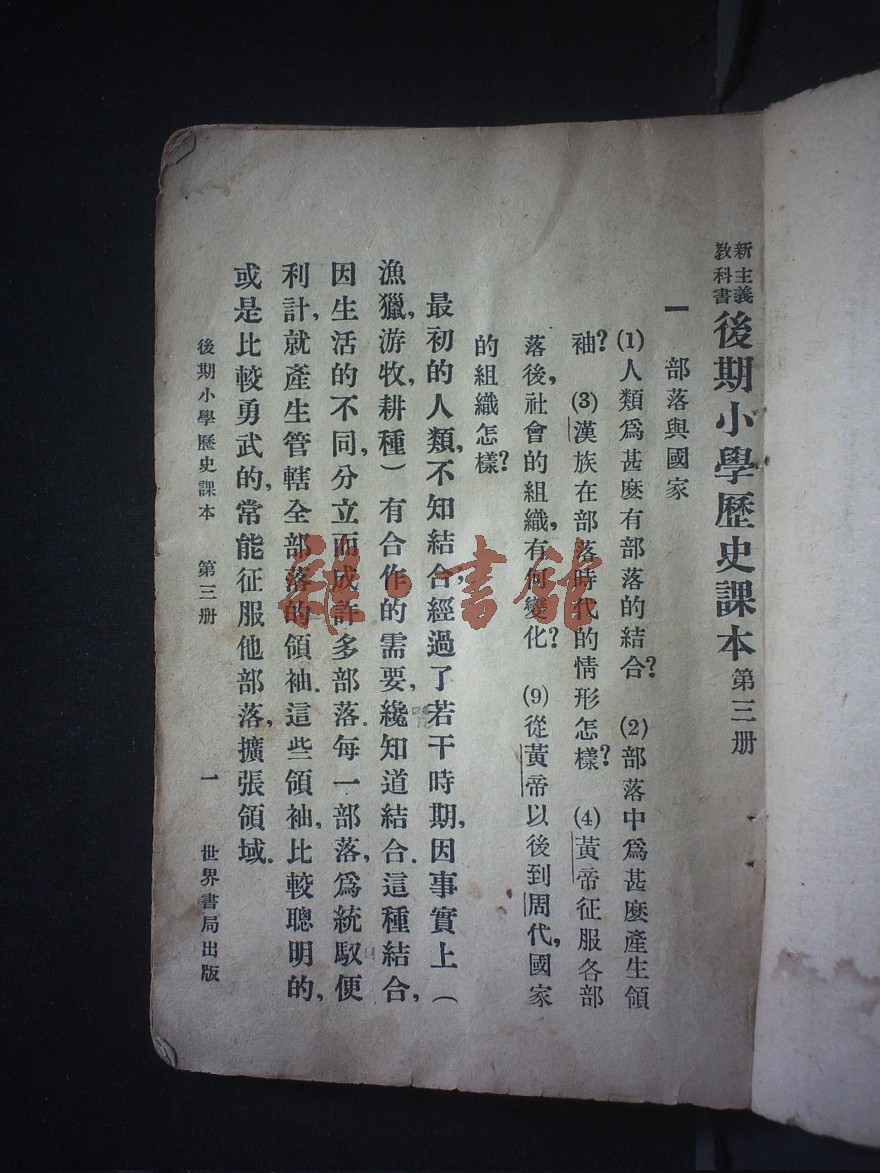 新主義教科書後期小學歷史課本 第三册
一 部落與國家
(1)人類爲甚麽有部落的結合？ (2)部落中爲甚麽產生領
袖？ (3)漢族在部落時代的情形怎樣？ (4)黃帝征服各部
落後，社會的組織，有何變化？ (9)從黃帝以後到周代，國家
的組織怎樣？
最初的人類，不知結合，經過了若干時期，因事實上（
漁獵，游牧，耕種）有合作的需要，纔知道結合．這種結合，
因生活的不同，分立而成許多部落．每一部落，爲統馭便
利計，就產生管轄全部落的領袖．這些領袖，比較聰明的，
或是比較勇武的，常能征服他部落，擴張領域．
後期小學歷史課本 第三册 一 世界書局出版
雜·書館